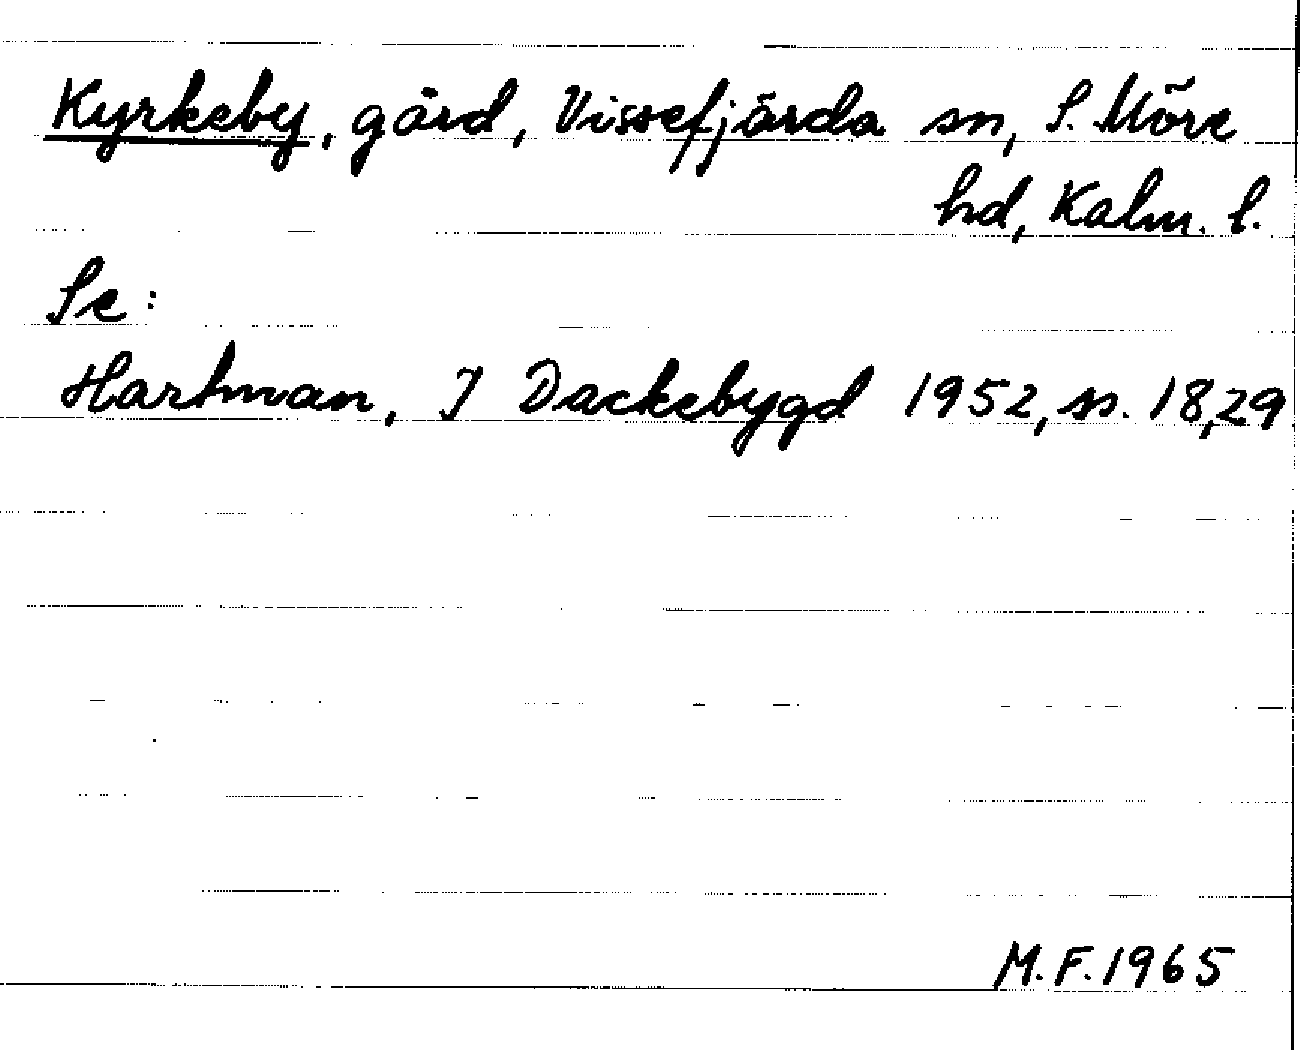 Kyrkeby, gård, Vissefjärda sn, S. Möre
hd, Kalm. l.
Se:
Hartman, I Dackebygd 1952, ss. 18, 29.
M.F. 1965